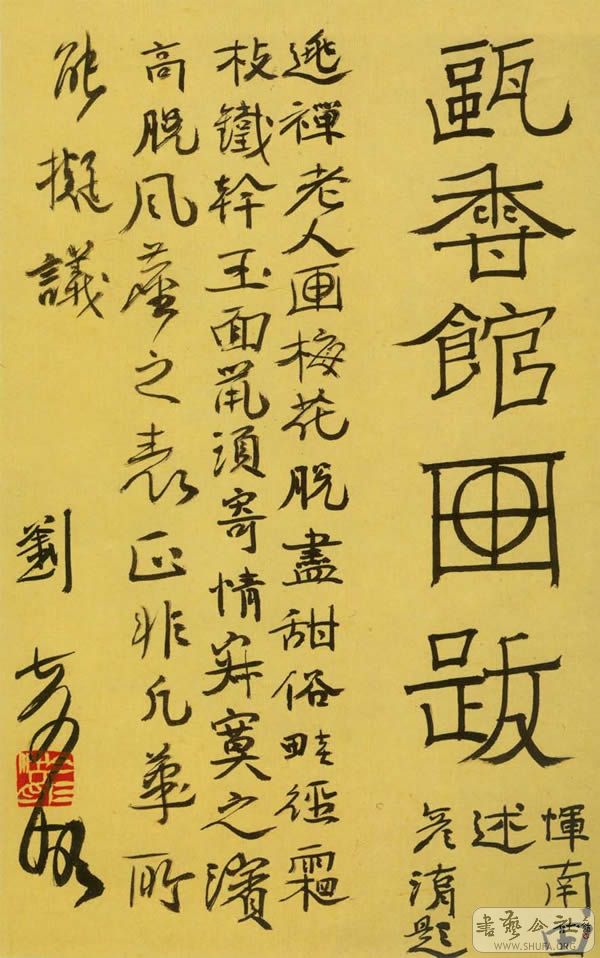 甌香館画跋
惲南田
述
彦湑題
逃禪老人画梅花脱盡甜俗畦徑霜
枝鐵幹玉面鼠須寄情寂寞之濱
高脱風塵之表正非凡筆所
能擬議
劉彦湖
書藝公社
WWW.SHUFA.ORG